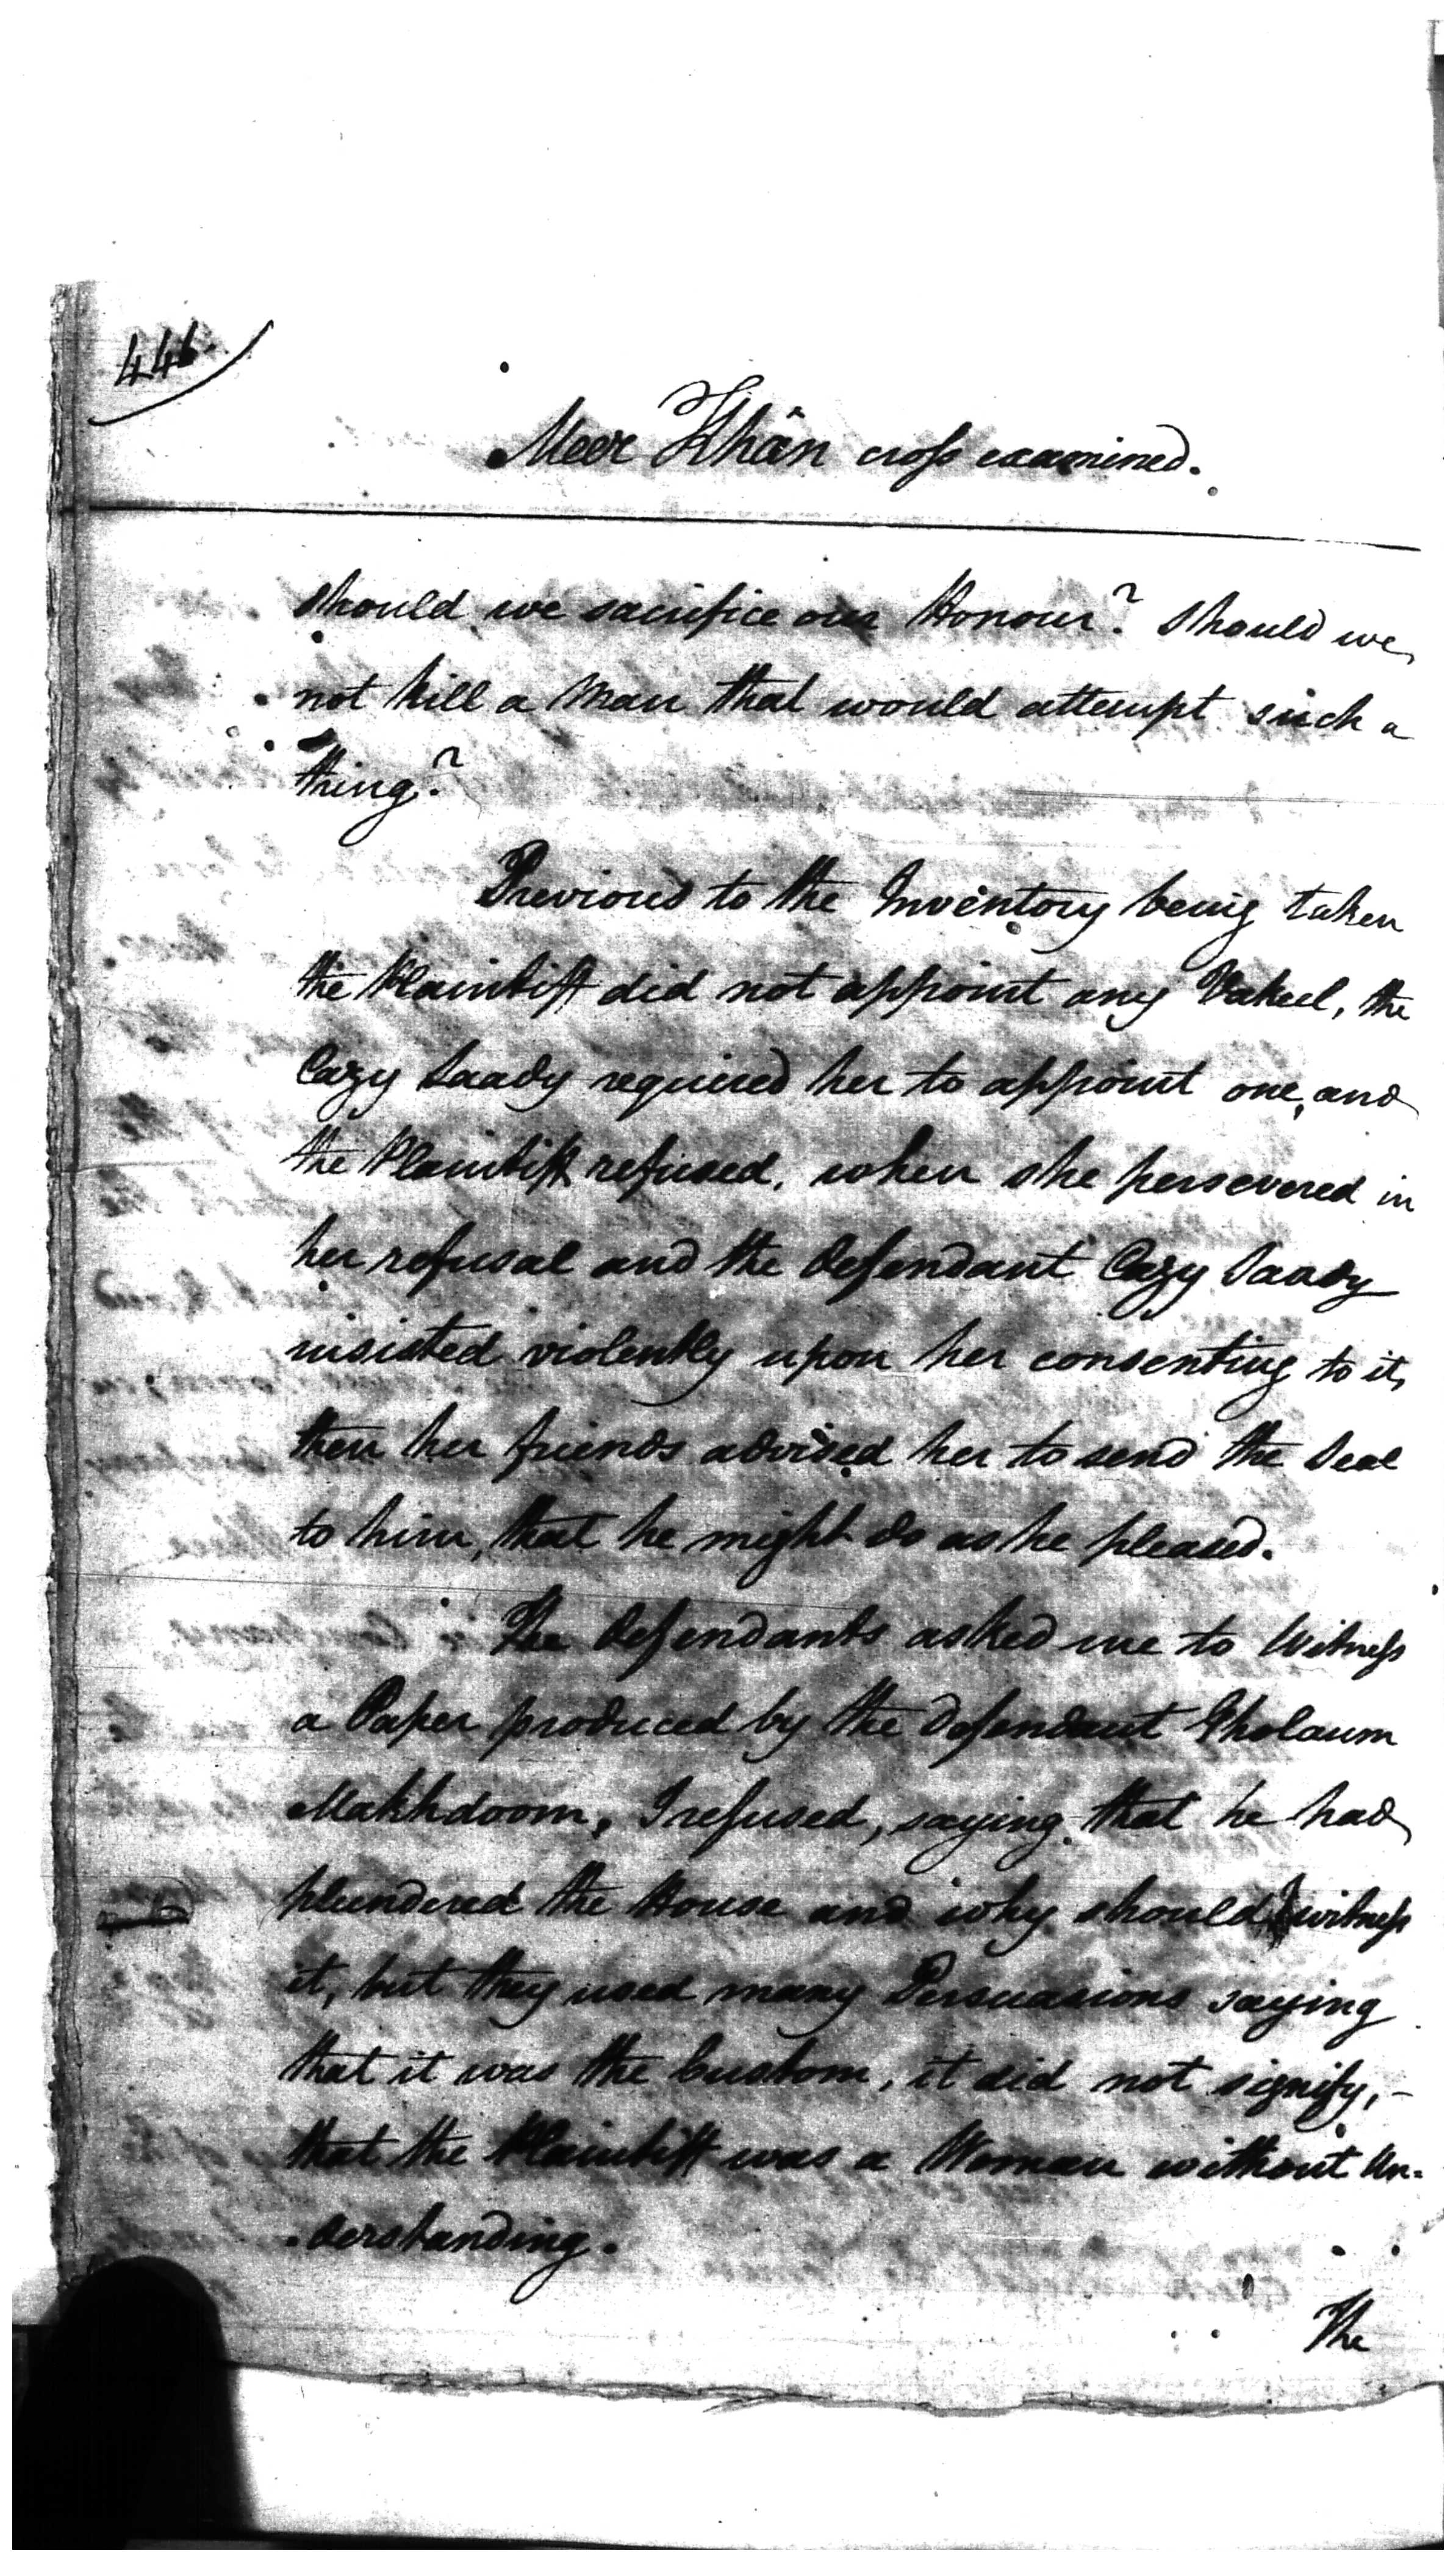 446.
Meer Khân cross examined.
should we sacrifice our Honour? should we
not kill a Man that would attempt such a
thing?
Previous to the Inventory being taken
the Plaintiff did not appoint any Vakeel, the
Cazy Saady required her to appoint one, and
the Plaintiff refused, when she persevered in
her refusal and the defendant Cazy Saady
insisted violently upon her consenting to it,
then her friends advised her to send the Seal
to him, that he might do as he pleased.
The defendants asked me to Witness
a Paper produced by the defendant Gholaum
Makhdoom, I refused, saying that he had
plundered the House and why should I witness
it, but they used many Persuasions saying
that it was the Custom, it did not signify, -
that the Plaintiff was a Woman without Un=
derstanding.
The